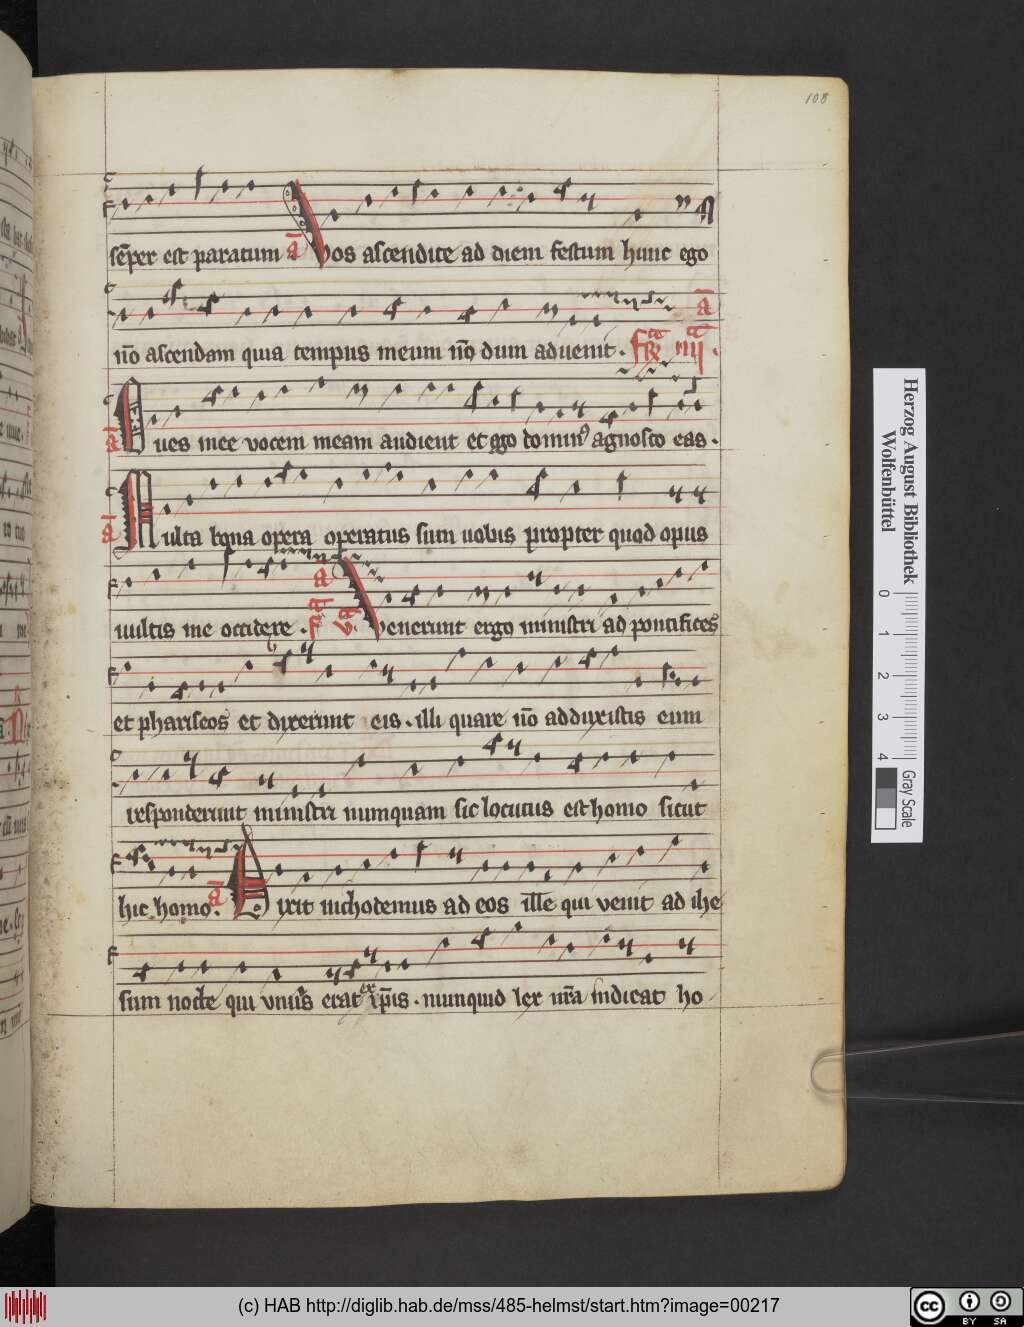 108
sēper est paratum a̅ Vos ascendite ad diem festum hunc ego
nō ascendam quia tempus meum nō dum aduenit. a̅
a̅ Oues mee vocem meam audient et ego dominꝰ agnosco eas.
a̅ Multa bona opera operatus sum uobis propter quod opus
uultis me occidere. a̅ Venerunt ergo ministri ad pontifices
et phariseos et dixerunt eis. illi quare nō adduxistis eum
responderunt ministri numquam sic locutus est homo sicut
hic homo. a̅ Dixit nichodemus ad eos ille qui venit ad ihe
sum nocte qui vnus erat ex ip̄is. nunquid lex nr̄a iudicat ho
Herzog August Bibliothek
Wolfenbüttel
0 1 2 3 4
Gray Scale
(c) HAB http://diglib.hab.de/mss/485-helmst/start.htm?image=00217
cc BY SA